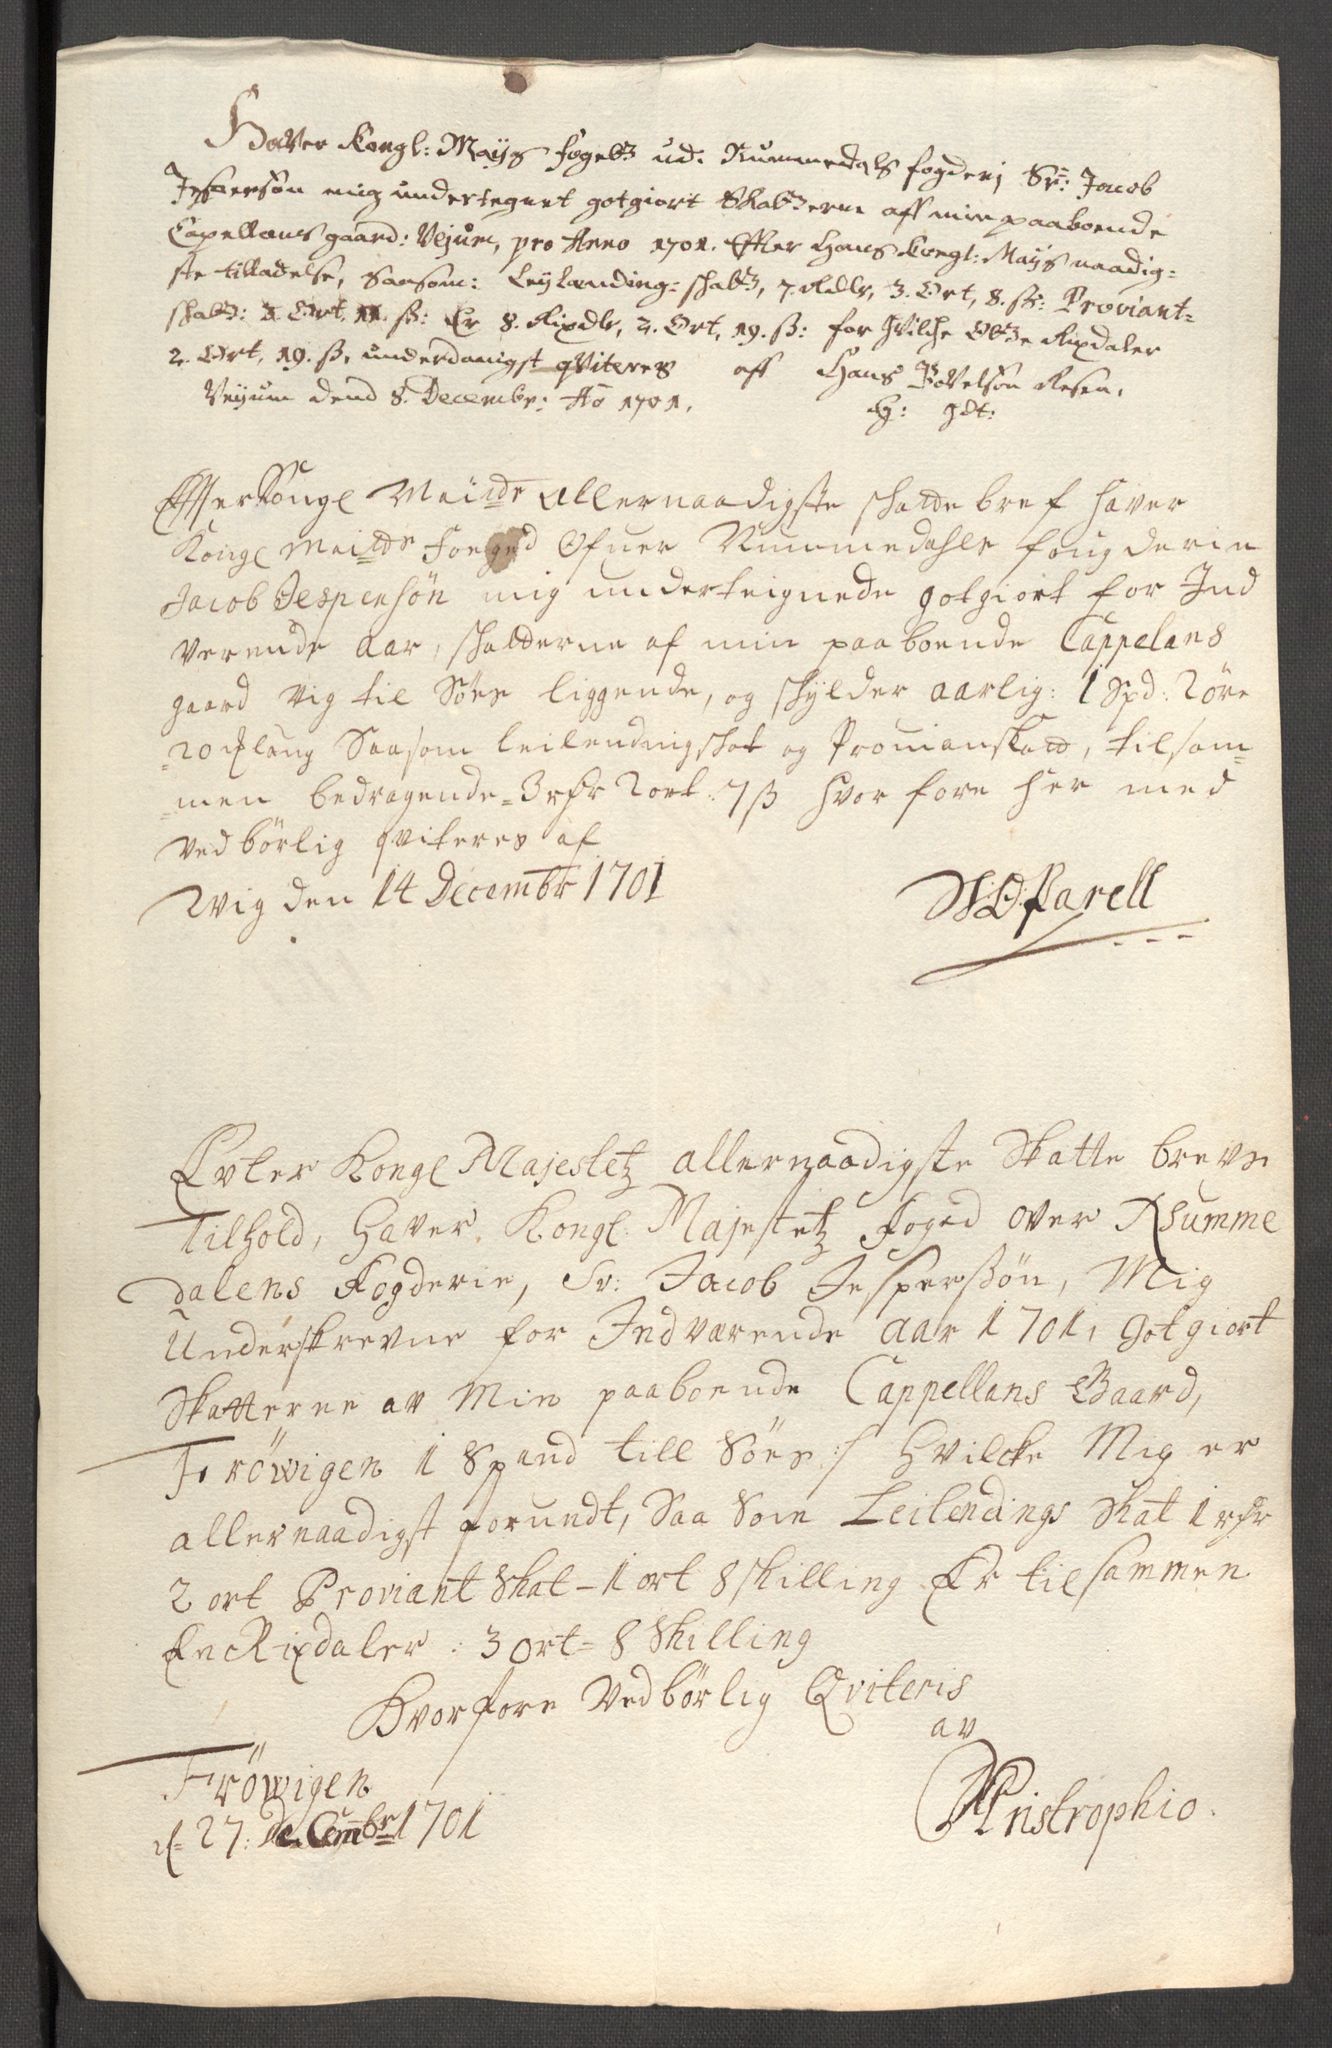 Haver Kongl: Mayß fogedt udi Nummedals fogderj Sr: Jacob
Jesperson mig undertegnet gotgiort Skatterne aff min paaboende
Capellans gaard: Vejum, pro Anno 1701. Effter Hans Kongl: Mayß naadig-
ste tilladelse, Saasom: Leylanding-skatt, 7. Rdlr, 3. Ort, 8. ß: Proviant-
skatt: 3. Ort. 11. ß: Er 8. Rixdlr, 2. Ort, 19. ß: for hvilche Otte Rixdaler
2. Ort, 19. ß, underdanigst qviteres aff Hans Povelsøn Resen.
Vejum dend 8. Decembr: Ao 1701. Eg: Hdt:
Effter Kongl Maitts allernaadigste skatte bref haver
Kongl Maitts Foeged Ofuer Nummedahls fougderie
Jacob Jespersøn mig underteignede gotgiort for Ind
verende aar, skatterne af min paaboende Cappelans
gaard Vig til Søes liggende, og skylder aarlig: 1 Spd: 2 øre
20 Mlaug Saasom leilendingskat og Prouianskatt, tilsam-
men bedragende 3 rdr 2 ort: 7 ß hvor fore her med
vedbørlig qviteres af
Wig den 14 Decembr 1701 HOParell
Evter Kongl Majestetz allernaadigste Skatte brevs
Tilhold, Haver Kongl. Majestetz Foged over Numme
dalens Fogderie, Sr: Jacob Jesperßøn, Mig
Underskrevne for Indværende Aar 1701, gotgiort
Skatterne av Min paaboende Cappellans Gaard,
Fröwigen 1 Spand till Søes :/ Hvilcke Mig er
allernaadigst forundt, Saa Som Leilendings Skat 1 rdr
2 ort Proviant Skat - 1 ort 8 skilling Er tilsammen
En Rixdaler 3 ort - 8 Skilling
Hvorfore Vedbørlig Qviteris
av
Fröwigen
d. 27: Decembr 1701 Aristrophio.